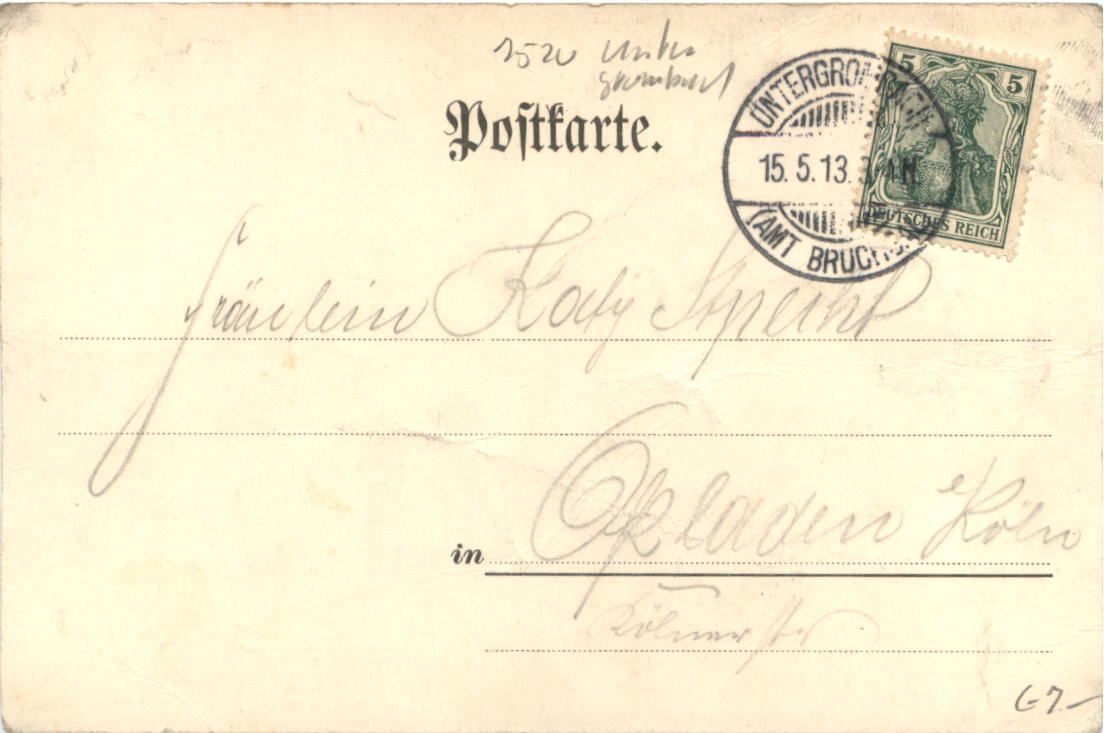 7520 Unter
grombach
Postkarte.
UNTERGROMBACH
15. 5. 13.
(AMT BRUCHSAL)
5 5
DEUTSCHES REICH
Fräulein Katy Specht
in Opladen Köln
Kölner str